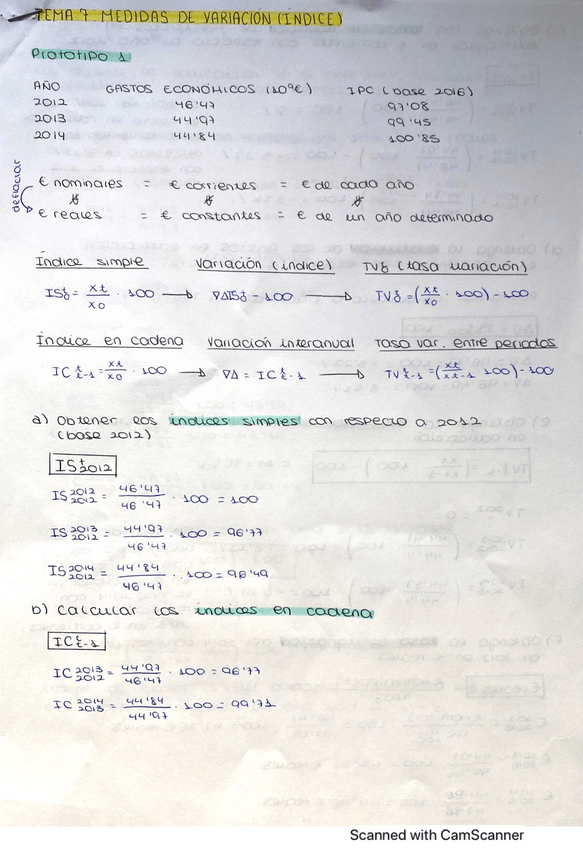 TEMA 7 MEDIDAS DE VARIACIÓN (ÍNDICE)
Prototipo 1
AÑO GASTOS ECONÓMICOS (10⁹€) IPC (base 2016)
2012 46'47 97'08
2013 44'97 99'45
2014 44'84 100'85
deflactar
€ nominales = € corrientes = € de cada año
€ reales = € constantes = € de un año determinado
Índice simple Variación (índice) TV₀ᵗ (tasa variación)
IS₀ᵗ = xt/x0 · 100 → ∇ΔIS₀ᵗ - 100 → TV₀ᵗ = (xt/x0 · 100) - 100
Índice en cadena Variación interanual Tasa var. entre periodos
IC ᵗₜ₋₁ = xt/x0 · 100 → ∇Δ = IC ᵗₜ₋₁ → TV ᵗₜ₋₁ = (xt/xt-1 100) - 100
a) Obtener los índices simples con respecto a 2012
(base 2012)
IS ᵗ₂₀₁₂
IS ²⁰¹²₂₀₁₂ = 46'47/46'47 · 100 = 100
IS ²⁰¹³₂₀₁₂ = 44'97/46'47 · 100 = 96'77
IS ²⁰¹⁴₂₀₁₂ = 44'84/46'47 · 100 = 96'49
b) Calcular los índices en cadena
IC ᵗₜ₋₁
IC ²⁰¹³₂₀₁₂ = 44'97/46'47 · 100 = 96'77
IC ²⁰¹⁴₂₀₁₃ = 44'84/44'97 · 100 = 99'71
Scanned with CamScanner